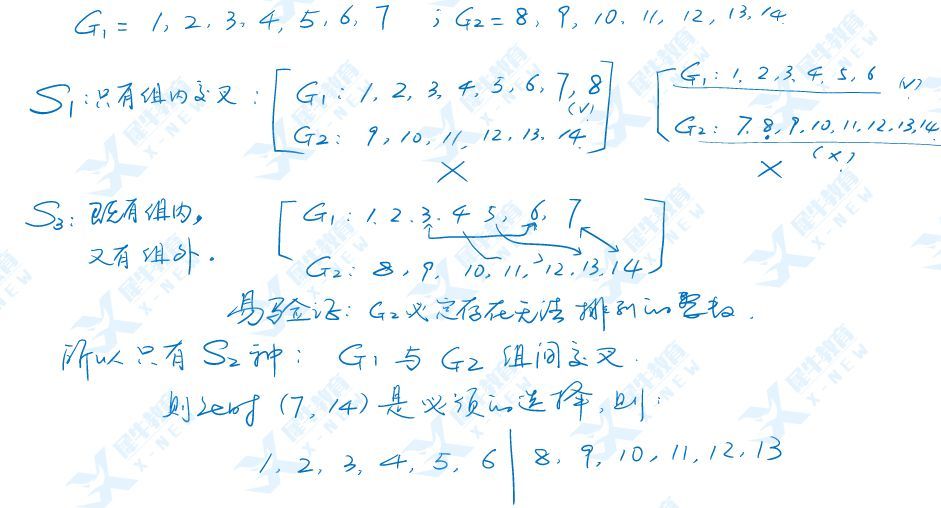 G₁ = 1, 2, 3, 4, 5, 6, 7 ; G₂ = 8, 9, 10, 11, 12, 13, 14
S₁: 只有组内交叉: [ G₁: 1, 2, 3, 4, 5, 6, 7, 8 (√) [ G₁: 1, 2, 3, 4, 5, 6 (√)
G₂: 9, 10, 11, 12, 13, 14 ] G₂: 7, 8, 9, 10, 11, 12, 13, 14
× × (×)
S₃: 既有组内, [ G₁: 1, 2, 3, 4, 5, 6, 7
又有组外. G₂: 8, 9, 10, 11, 12, 13, 14 ]
易验证: G₂必定存在无法排列的整数.
所以只有 S₂ 种: G₁ 与 G₂ 组间交叉.
则此时 (7, 14) 是必须的选择, 则:
1, 2, 3, 4, 5, 6 | 8, 9, 10, 11, 12, 13
犀牛教育
X-NEW